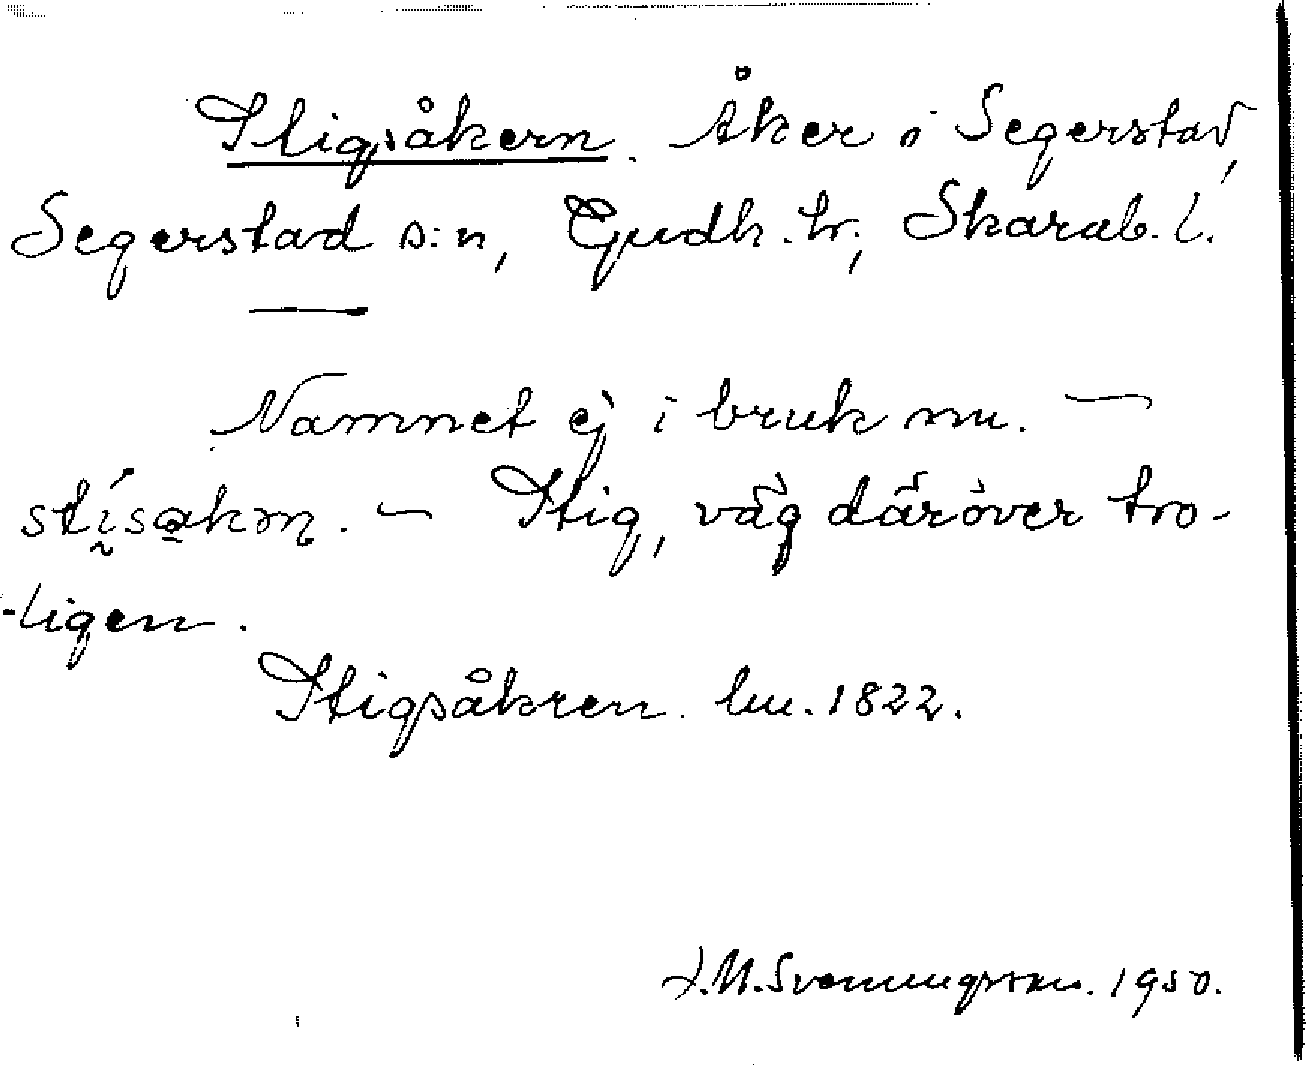 Stigsåkern. Åker i Segerstad,
Segerstad s:n, Gudh. hr., Skarab. l.
Namnet ej i bruk nu. —
stísakɳ. — Stig, väg däröver tro-
-ligen.
Stigsåkren. lm. 1822.
J.M. Svenningsson. 1950.